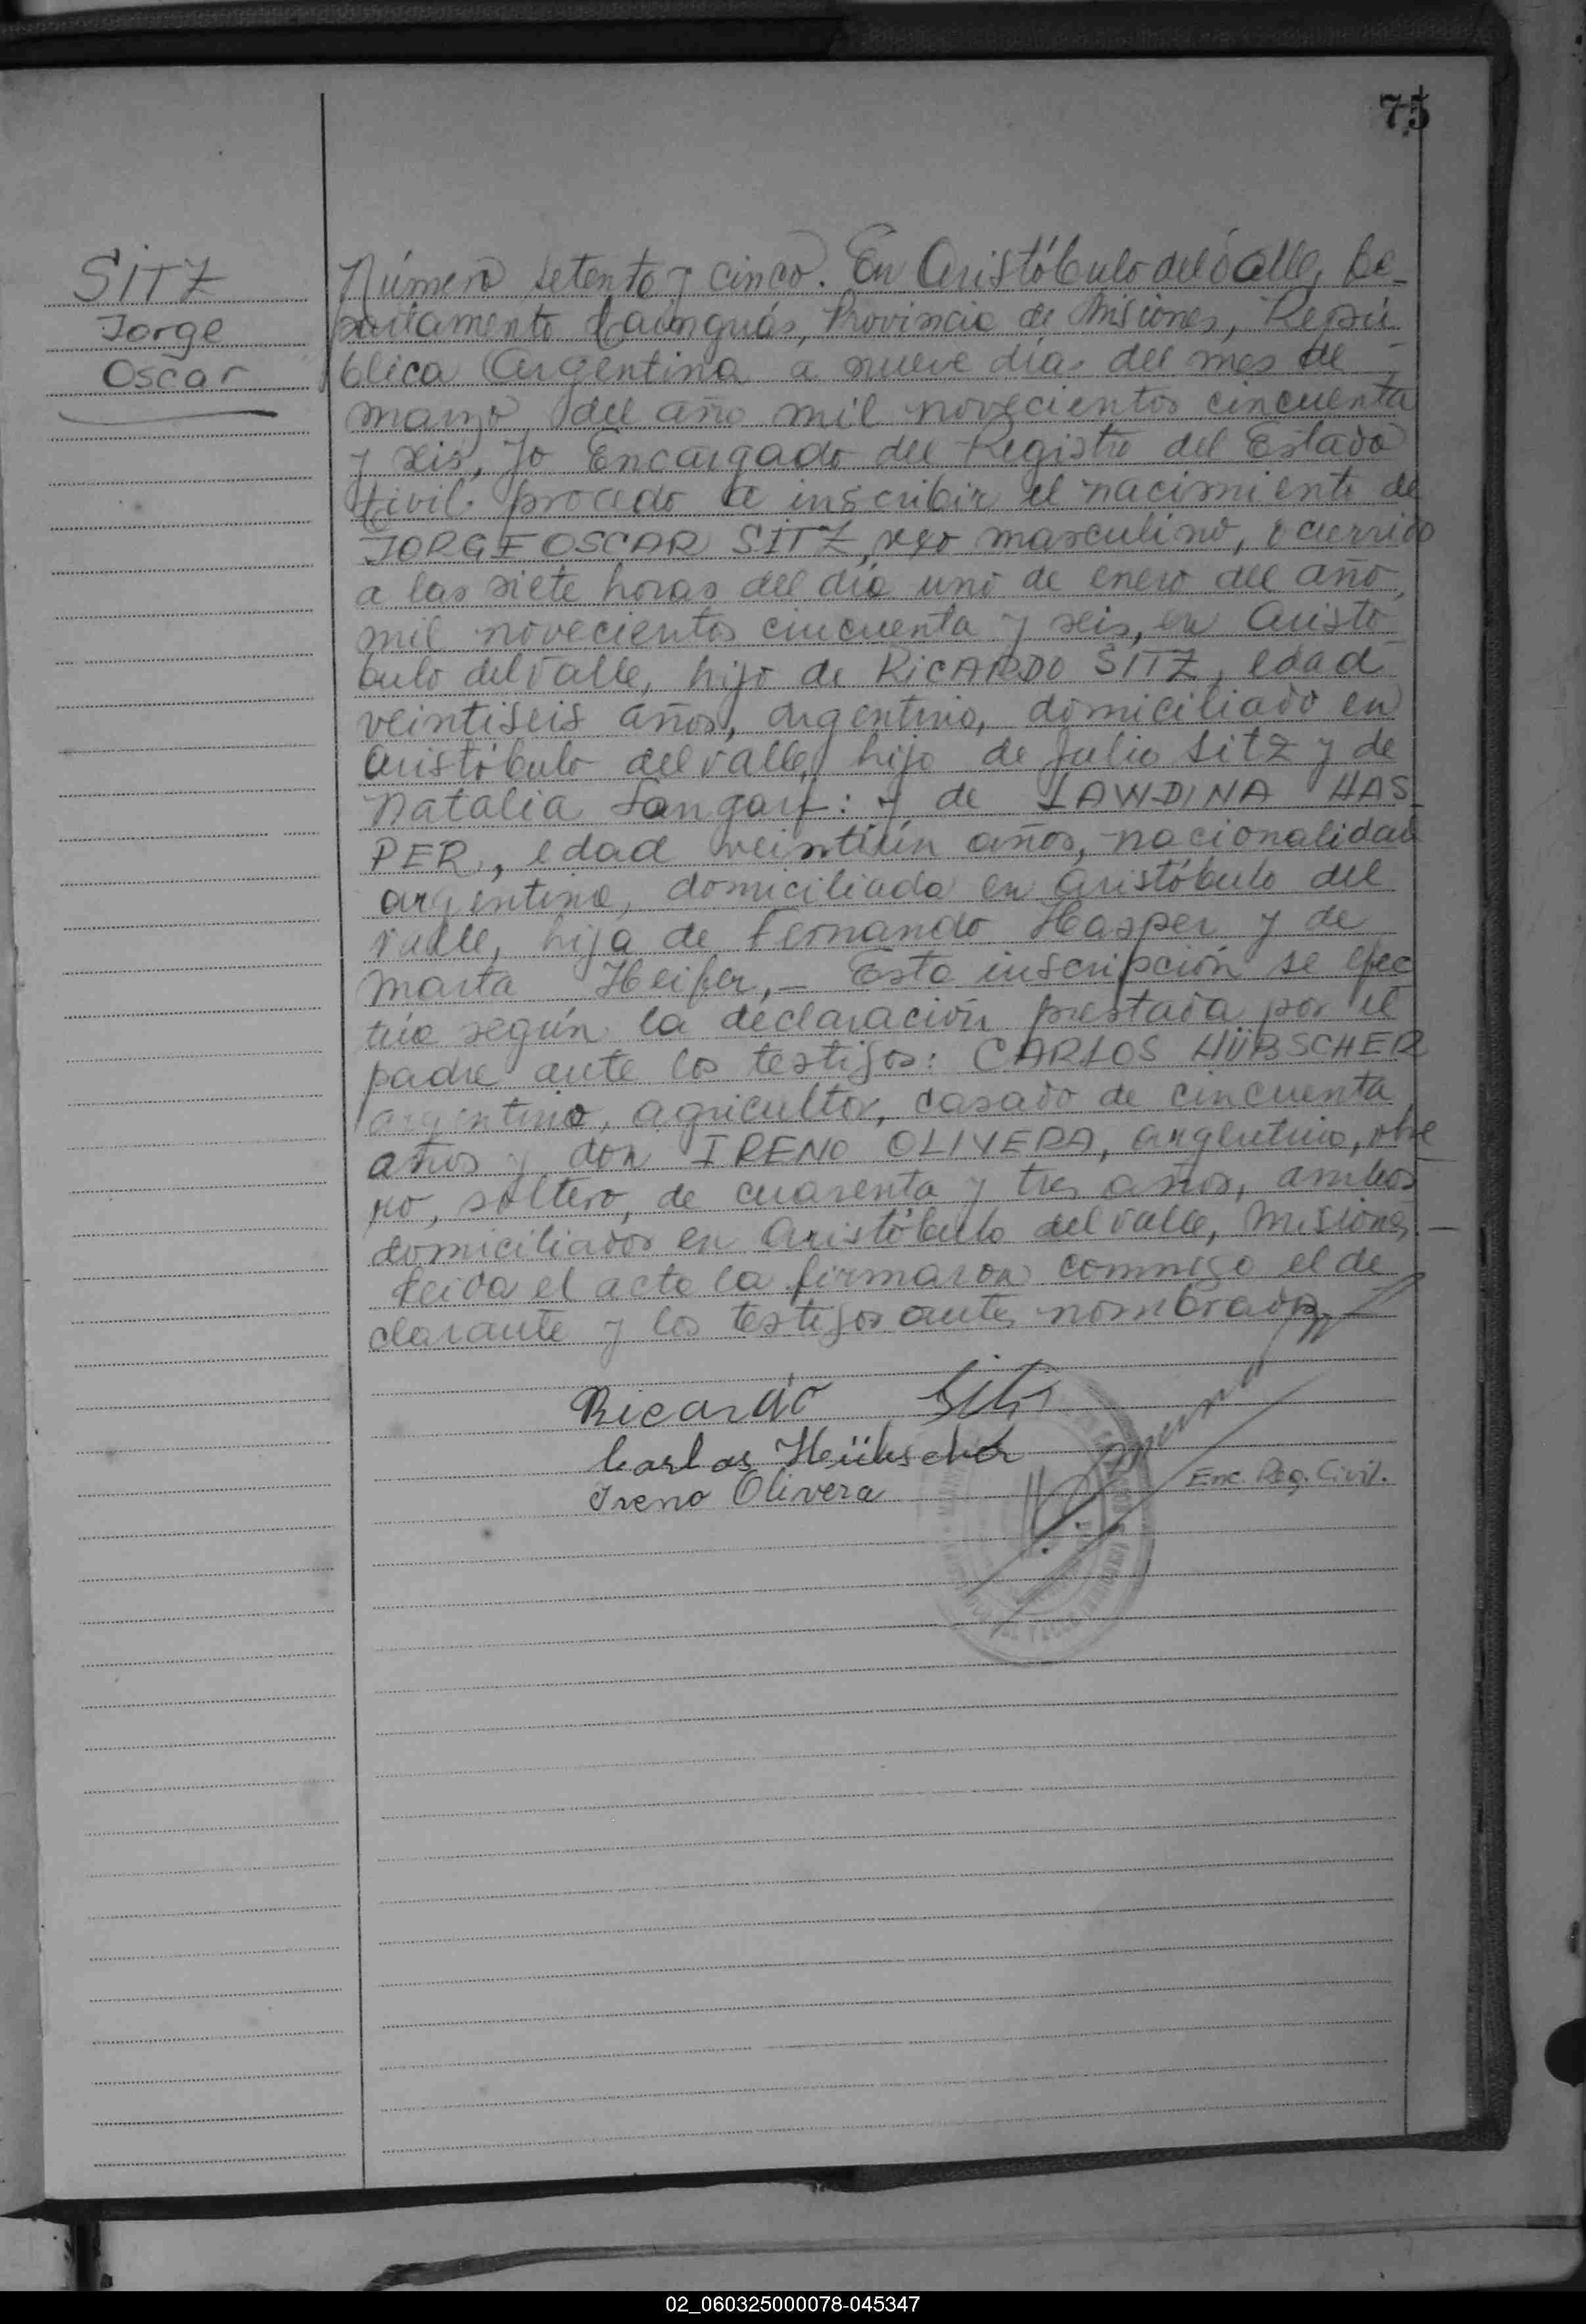 75
SITZ
Jorge
Oscar
Número setenta y cinco. En Aristóbulo del Valle, De-
partamento Cainguás, Provincia de Misiones, Repú-
blica Argentina a nueve días del mes de
marzo del año mil novecientos cincuenta
y seis, Yo Encargado del Registro del Estado
Civil procedo a inscribir el nacimiento de
JORGE OSCAR SITZ, sexo masculino, ocurrido
a las siete horas del día uno de enero del año
mil novecientos cincuenta y seis, en Aristó
bulo del Valle, hijo de RICARDO SITZ, edad
veintiseis años, argentino, domiciliado en
Aristóbulo del Valle, hijo de Julio Sitz y de
Natalia : y de LAWDINA HAS-
PER, edad veintiún años, nacionalidad
argentina, domiciliada en Aristóbulo del
Valle, hija de Fernando Hasper y de
Marta .- Esta inscripción se efec
túa según la declaración prestada por el
padre ante los testigos: CARLOS HÜBSCHER
argentino, agricultor, casado de cincuenta
años y don IRENO OLIVERA, argentino, obre
ro, soltero, de cuarenta y tres años, ambos
domiciliados en Aristóbulo del Valle, Misiones.—
Leida el acta la firmaron conmigo el de
clarante y los testigos antes nombrados
Ricardo Sitz
Carlos Hübscher
Ireno Olivera
Enc. Reg. Civil.
02_060325000078-045347